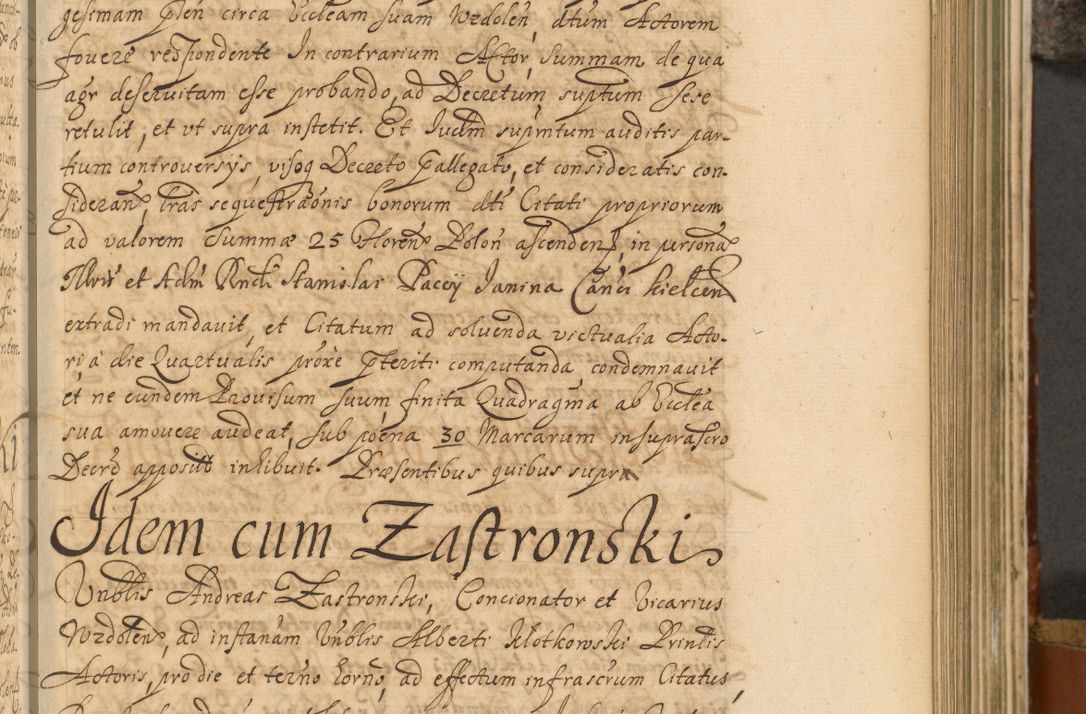 gesimam pſen circa Eccleam suam Wzdolen, dtum Actorem
fovere respondente In contrarium Actor, summam de qua
agr deservitam esse probando, ad Decretum suptum sese
retulit, et vt supra institit. Et Iudm supmtum auditis par-
tium controversys, visoq Decreto pallegato, et consideratis con-
sideran, lras sequestraonis bonorum dti Citati propriorum
ad valorem Summæ 25 Floren Polon ascenden, in persona
Illris et Adm Rndi Stanislai Pacey Janina Canci kielcen
extradi mandavit, et Citatum ad solvenda victualia Acto-
ri à die Quartualis proxe pteriti computanda condemnavit
et ne eundem Provisum suum finita Quadragma ab Ecclea
sua amovere audeat, sub poena 30 Marcarum in suprascro
Decro apposuit inhibuit. Præsentibus quibus supra
Idem cum Zastronski
Vnblis Andreas Zastronski, Concionator et Vicarius
Wzdolen, ad instanam Vnblis Alberti Kłotkowski Prinlis
Actoris, pro die et terno horno, ad effectum infrascrum Citatus,